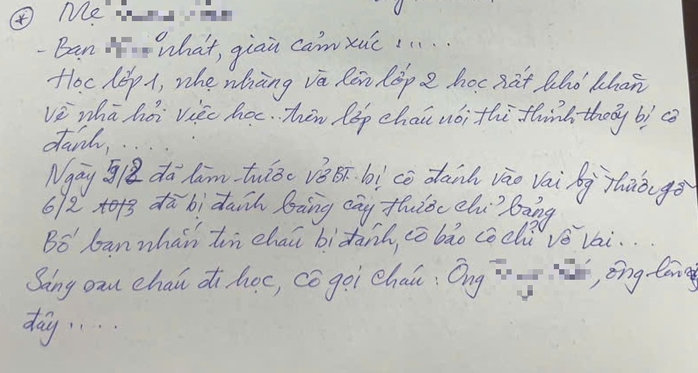 * Mẹ
- Bạn nhát, giàu cảm xúc :....
Học lớp 1, nhẹ nhàng và lên lớp 2 học rất khó khăn
Về nhà hỏi việc học.. trên lớp cháu nói thì thỉnh thoảng bị cô
đánh, ....
Ngày 5/2 đã làm trước vở BT bị cô đánh vào vai bằng thước gỗ
6/2 đã bị đánh bằng cây thước chỉ bảng
Bố bạn nhắn tin cháu bị đánh, cô bảo cô chỉ vỗ vai...
Sáng sau cháu đi học, cô gọi cháu: Ông , ông lên
đây.....